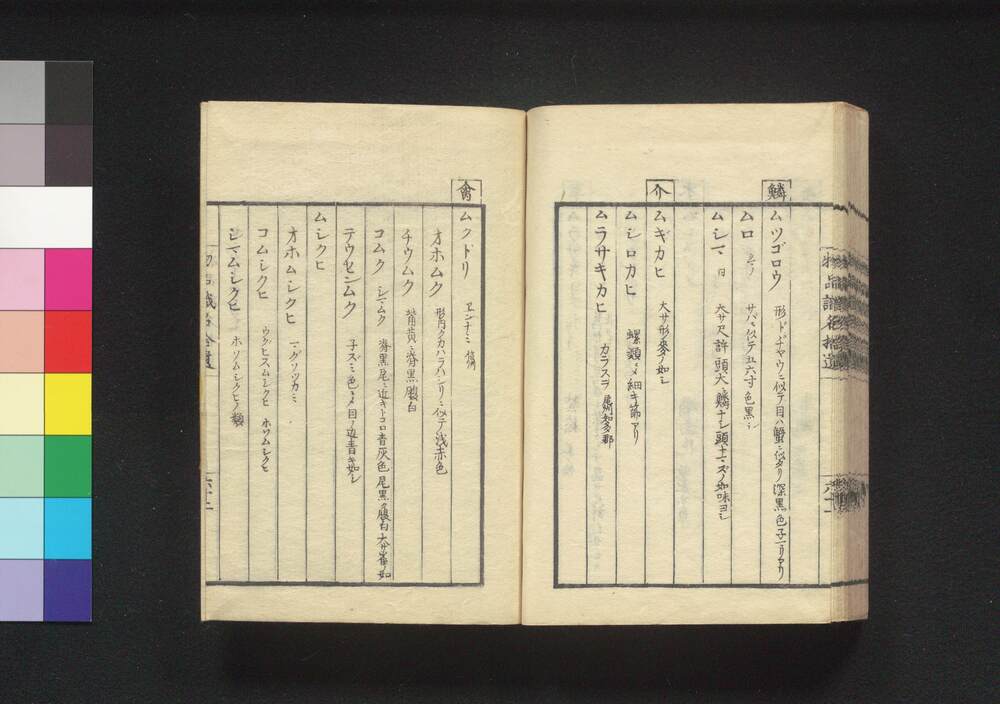 鱗
ムツゴロウ 形ドヂャウニ似テ目ハ蟹ニ似タリ深黒色子一リアリ
ムロ サバニ似テ五六寸色黒シ
ムシマ 大サ尺許頭大ニ鱗ナシ頭ナマズノ如味ヨシ
介
ムギカヒ 大サ形麥ノ如シ
ムシロカヒ 螺類ニメ細キ筋アリ
ムラサキカヒ カラスヲ 尾州知多郡
物品識名拾遺
六十一
禽
ムクドリ ヱンナミ 信州
オホムク 形イカハラハシリニ似テ浅赤色
チウムク 背黄ニ脊黒腹白
コムク シマムク 脊黒尾ニ近キトコロ青灰色尾黒腹白大サ雀ノ如
テウセンムク 子ズミ色ニメ目ノ辺青キ如シ
ムシクヒ
オホムシクヒ マグソツカミ
コムシクヒ ウグヒスムシクヒ ホソムシクヒ
シマムシクヒ ホソムシクヒノ類